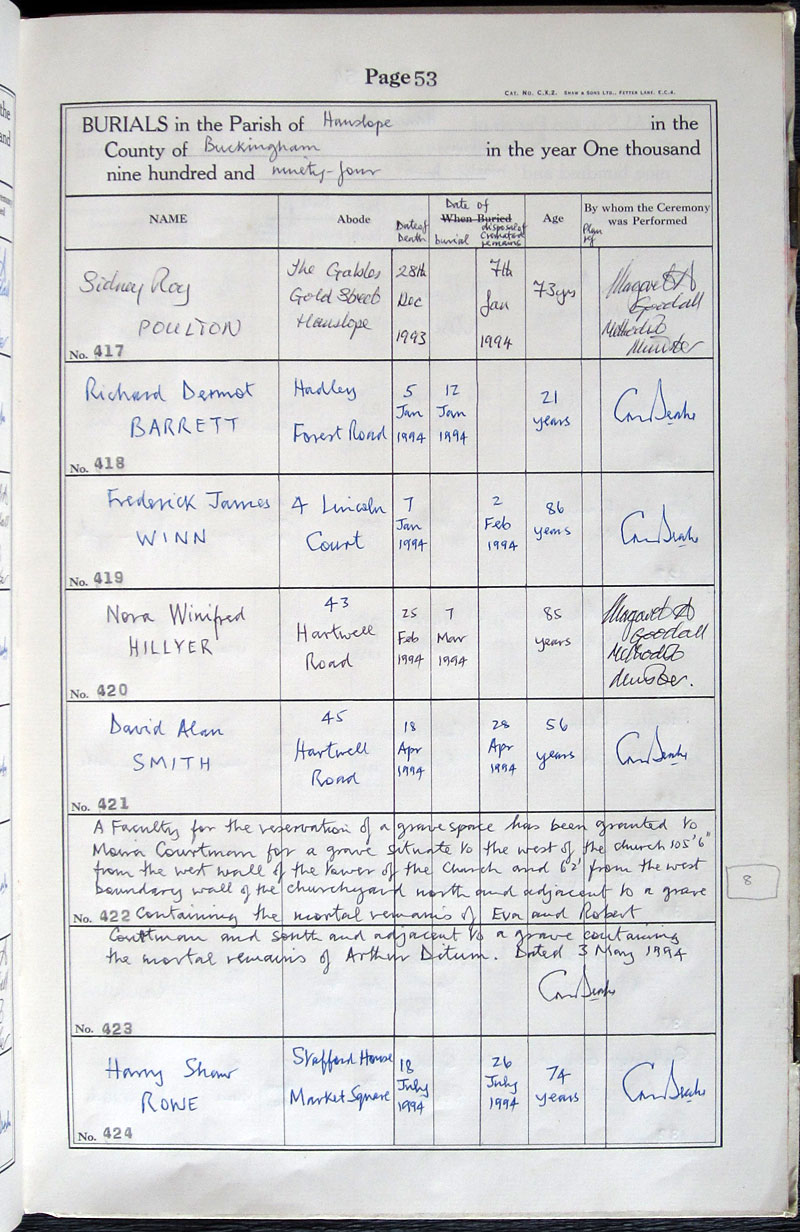 Page 53
CAT. NO. C.X.2. SHAW & SONS LTD., FETTER LANE, E.C.4.
BURIALS in the Parish of Hanslope in the
County of Buckingham in the year One thousand
nine hundred and ninety-four
NAME
Abode
Date of Death
Date of
When Buried
burial
disposal of Cremated remains
Age
Plan ref
By whom the Ceremony
was Performed
Sidney Roy
POULTON
No. 417
The Gables
Gold Street
Hanslope
28th
Dec
1993
7th
Jan
1994
73yrs
Margaret A
Goodall
Methodist
Minister
Richard Dermot
BARRETT
No. 418
Hadley
Forest Road
5
Jan
1994
12
Jan
1994
21
years
Frederick James
WINN
No. 419
4 Lincoln
Court
7
Jan
1994
2
Feb
1994
86
years
Nora Winifred
HILLYER
No. 420
43
Hartwell
Road
25
Feb
1994
7
Mar
1994
85
years
Margaret A
Goodall
Methodist
Minister.
David Alan
SMITH
No. 421
45
Hartwell
Road
18
Apr
1994
28
Apr
1994
56
years
A Faculty for the reservation of a grave space has been granted to
Moira Courtman for a grave situate to the west of the church 105'6"
from the west wall of the tower of the Church and 62' from the west
boundary wall of the churchyard north and adjacent to a grave
No. 422 containing the mortal remains of Eva and Robert
Courtman and south and adjacent to a grave containing
the mortal remains of Arthur Ditum. Dated 3 May 1994
No. 423
8
Harry Shaw
ROWE
No. 424
Stafford House
Market Square
18
July
1994
26
July
1994
74
years